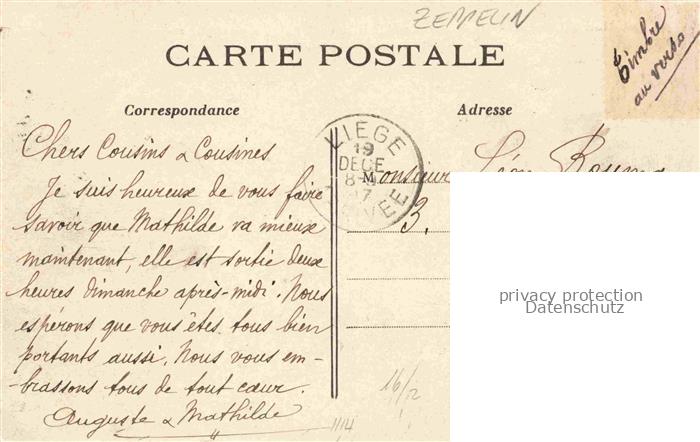 ZEPPELIN
CARTE POSTALE
Timbre
au verso
Correspondance
Adresse
LIEGE
19
DECE
Chers Cousins & Cousines
Je suis heureux de vous faire
savoir que Mathilde va mieux
maintenant, elle est sortie deux
heures dimanche après-midi. Nous
espérons que vous êtes tous bien
portants aussi. Nous vous em-
-brassons tous de tout cœur.
Auguste & Mathilde
Monsieur Léon
3.
1114
16/12
privacy protection
Datenschutz